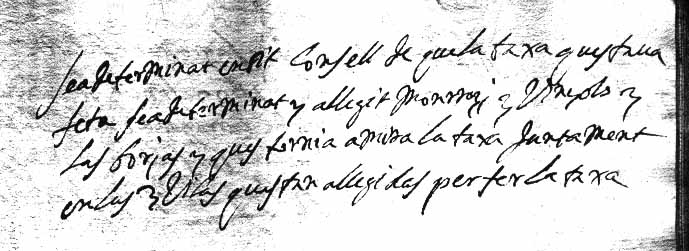 seadeterminat endit Consell de que la taxa questaua
feta seadeterminat y allegit y
las borjas y ques tornia amira la taxa Juntament
en las questan allegidas per fer la taxa